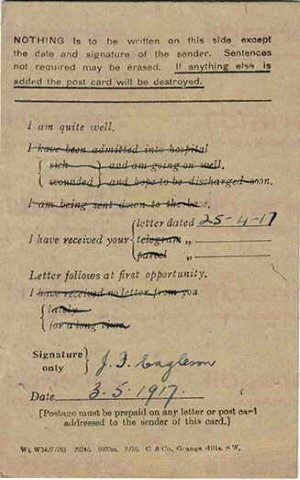 NOTHING is to be written on this side except
the date and signature of the sender. Sentences
not required may be erased. If anything else is
added the post card will be destroyed.
I am quite well.
I have been admitted into hospital
{ sick } and am going on well.
{ wounded } and hope to be discharged soon.
I am being sent down to the base.
I have received your { letter dated 25-4-17
telegram ,,
parcel ,,
Letter follows at first opportunity.
I have received no letter from you
{ lately.
{ for a long time.
Signature only } J. F.
Date 3.5.1917.
[Postage must be prepaid on any letter or post card
addressed to the sender of this card.]
C. & Co., Grange Mills, S.W.